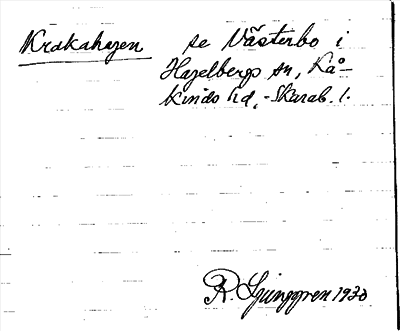 Krakahagen se Västerbo i
Hagelbergs sn, Kå-
kinds hd, - Skarab. l.
R. Ljunggren 1930